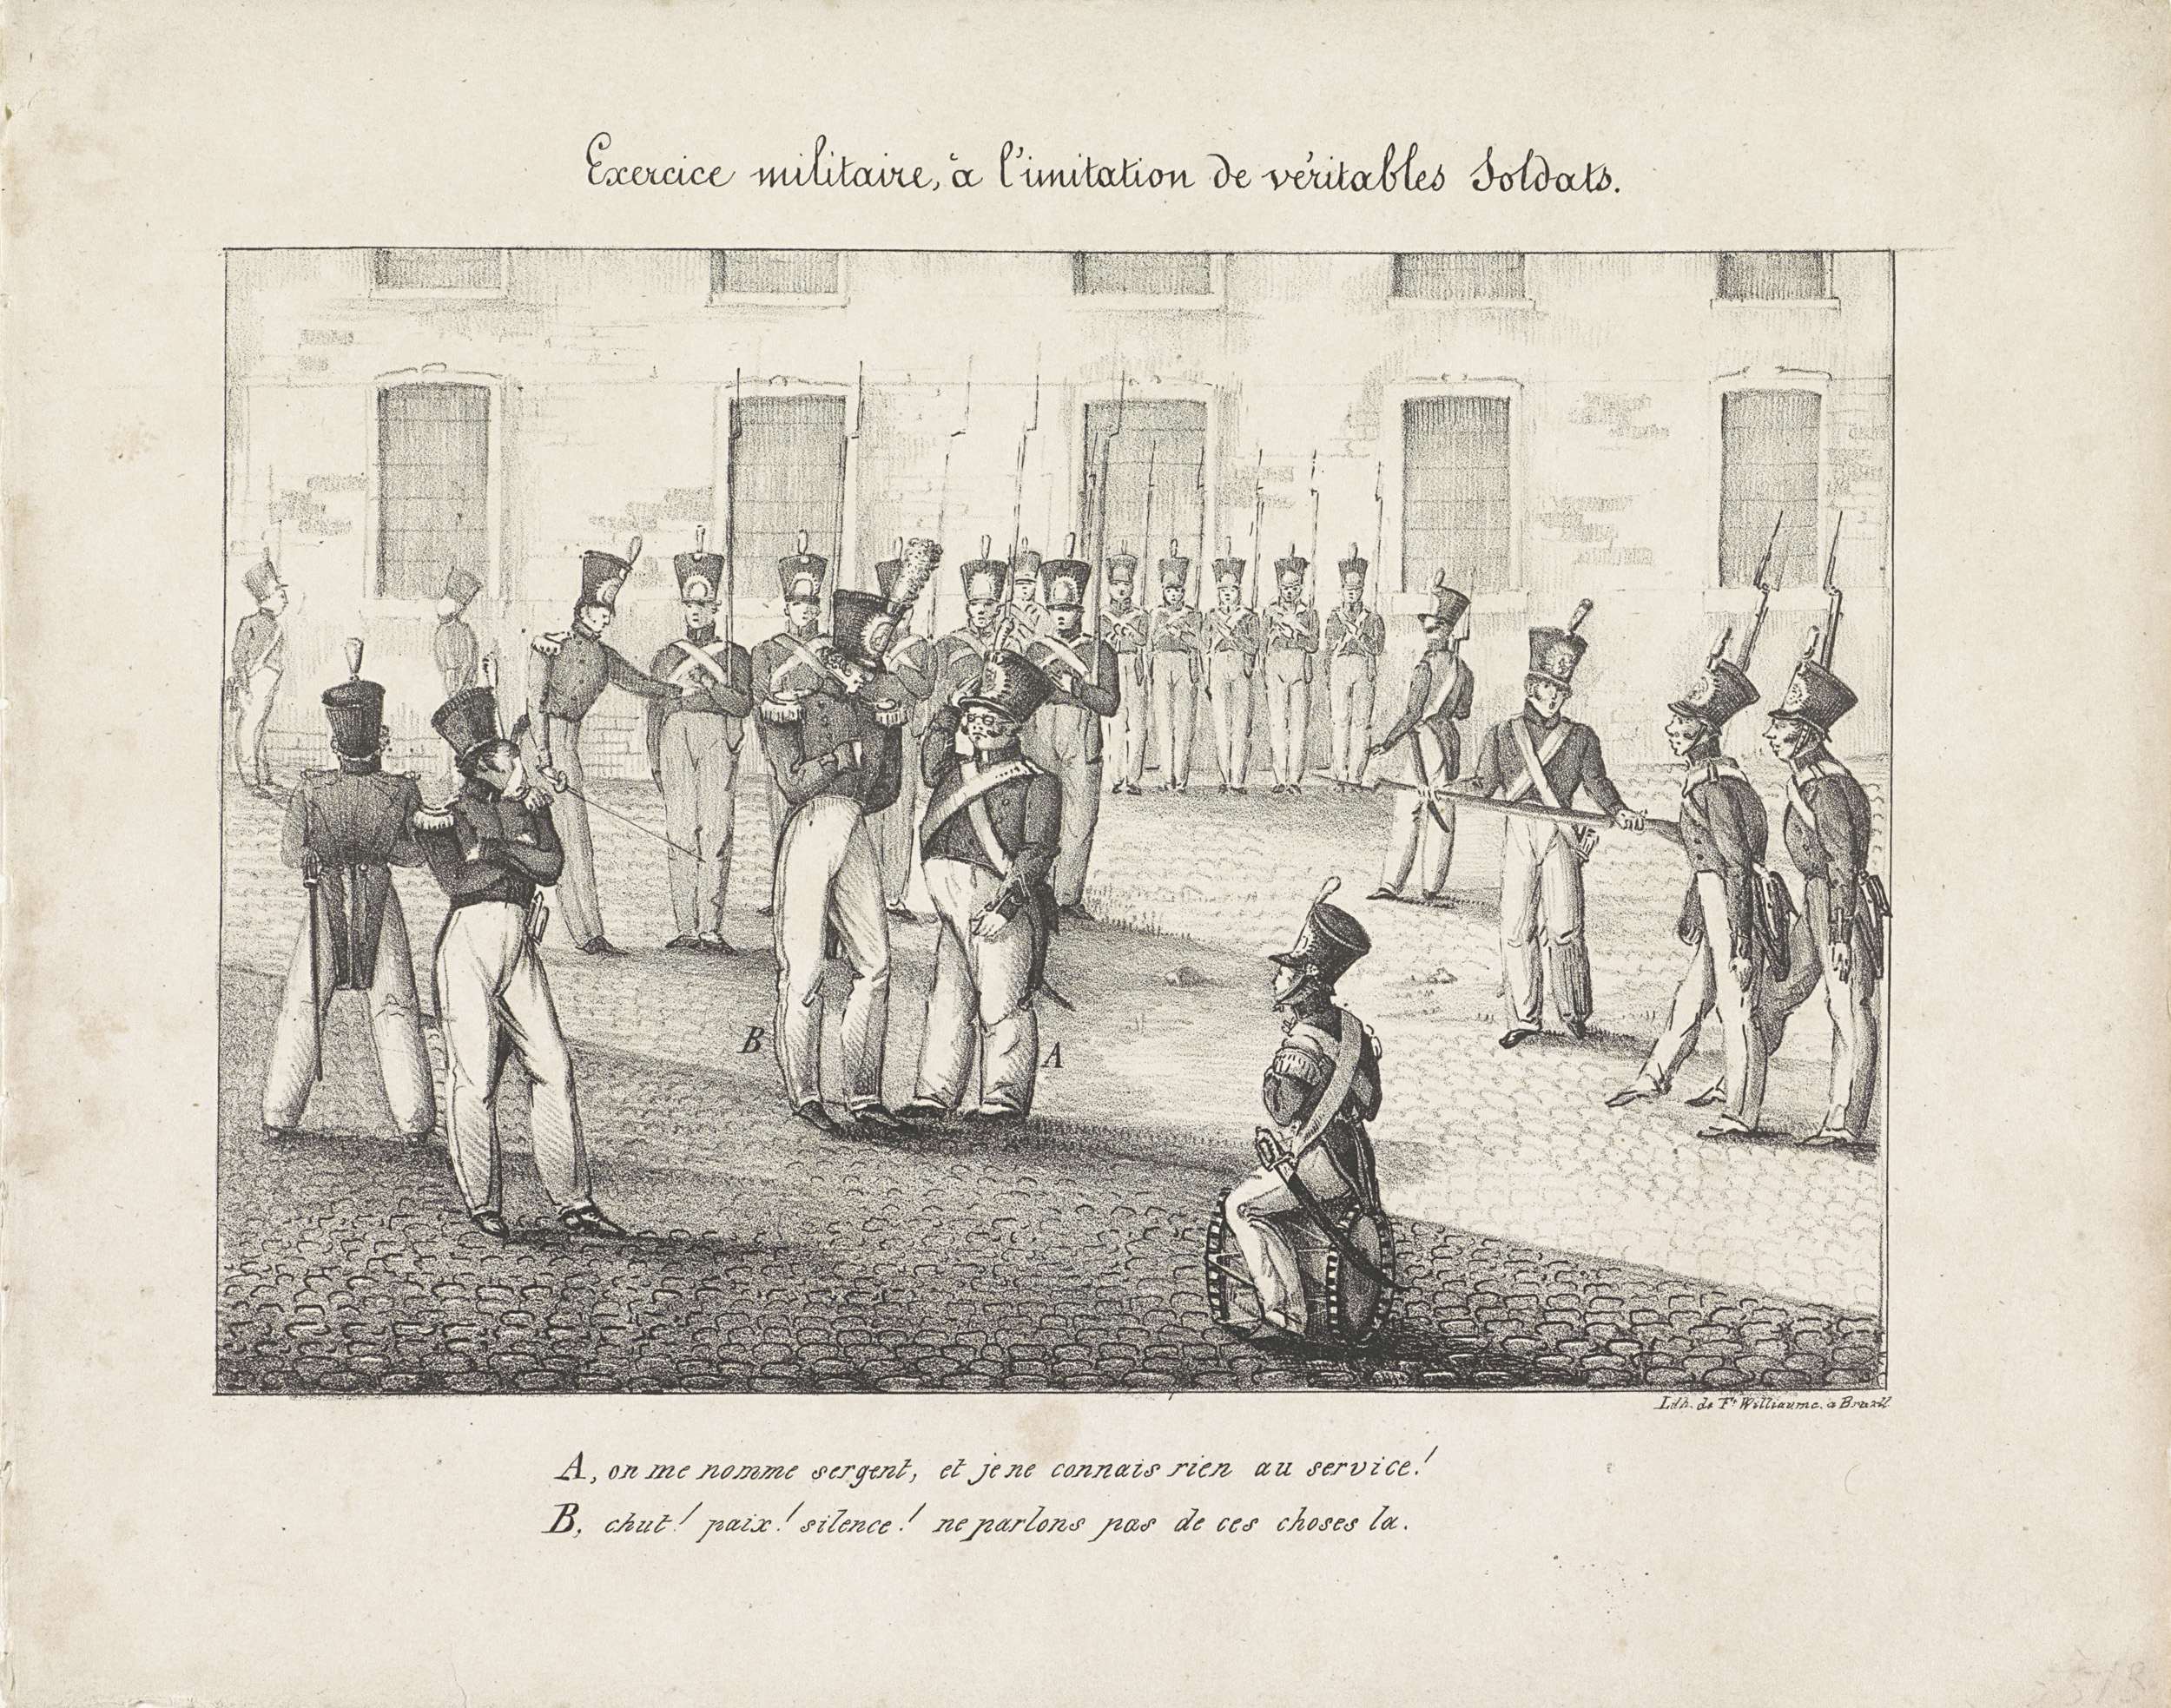 Exercice militaire, à l'imitation de véritables Soldats.
B
A
Lith. de Fs Williaume. a Bruxll
A, on me nomme sergent, et je ne connais rien au service!
B, chut! paix! silence! ne parlons pas de ces choses la.